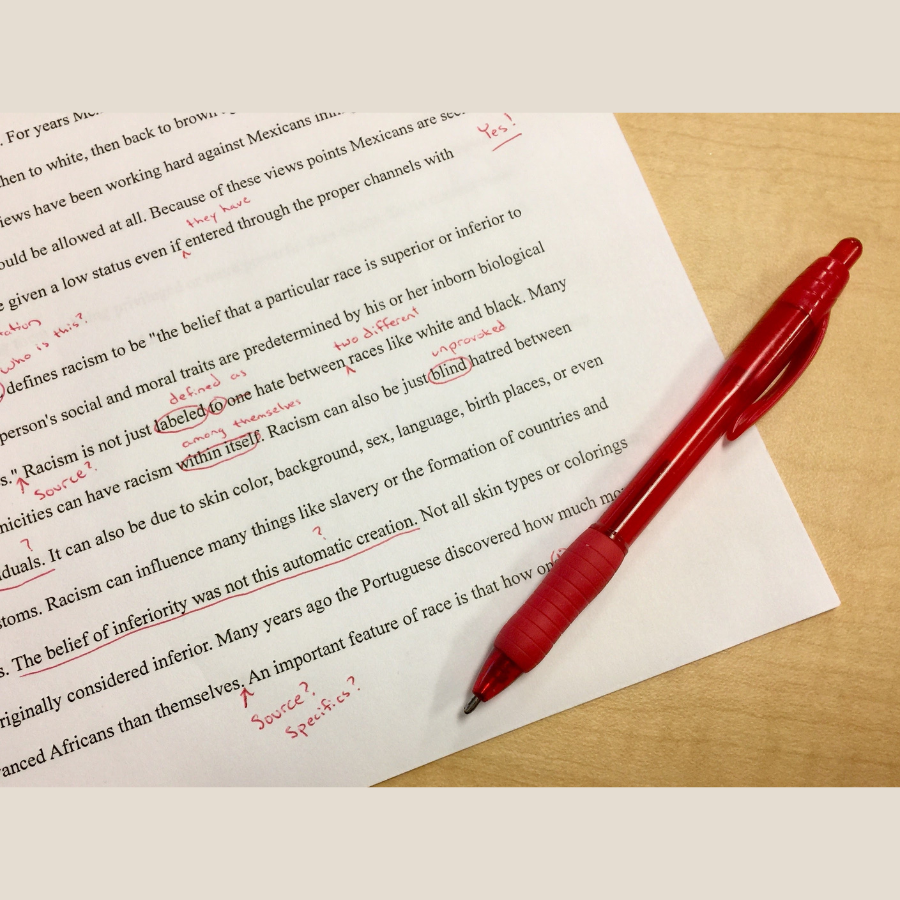 . For years
then to white, then back to brown
Yes!
iews have been working hard against Mexicans
ould be allowed at all. Because of these views points Mexicans are
they have
e given a low status even if entered through the proper channels with
who is this?
defines racism to be "the belief that a particular race is superior or inferior to
person's social and moral traits are predetermined by his or her inborn biological
defined as
two different
unprovoked
s." Racism is not just labeled to one hate between races like white and black. Many
Source?
among themselves
nicities can have racism within itself. Racism can also be just blind hatred between
?
duals. It can also be due to skin color, background, sex, language, birth places, or even
?
stoms. Racism can influence many things like slavery or the formation of countries and
s. The belief of inferiority was not this automatic creation. Not all skin types or colorings
riginally considered inferior. Many years ago the Portuguese discovered how much
anced Africans than themselves. An important feature of race is that how
Source?
Specifics?